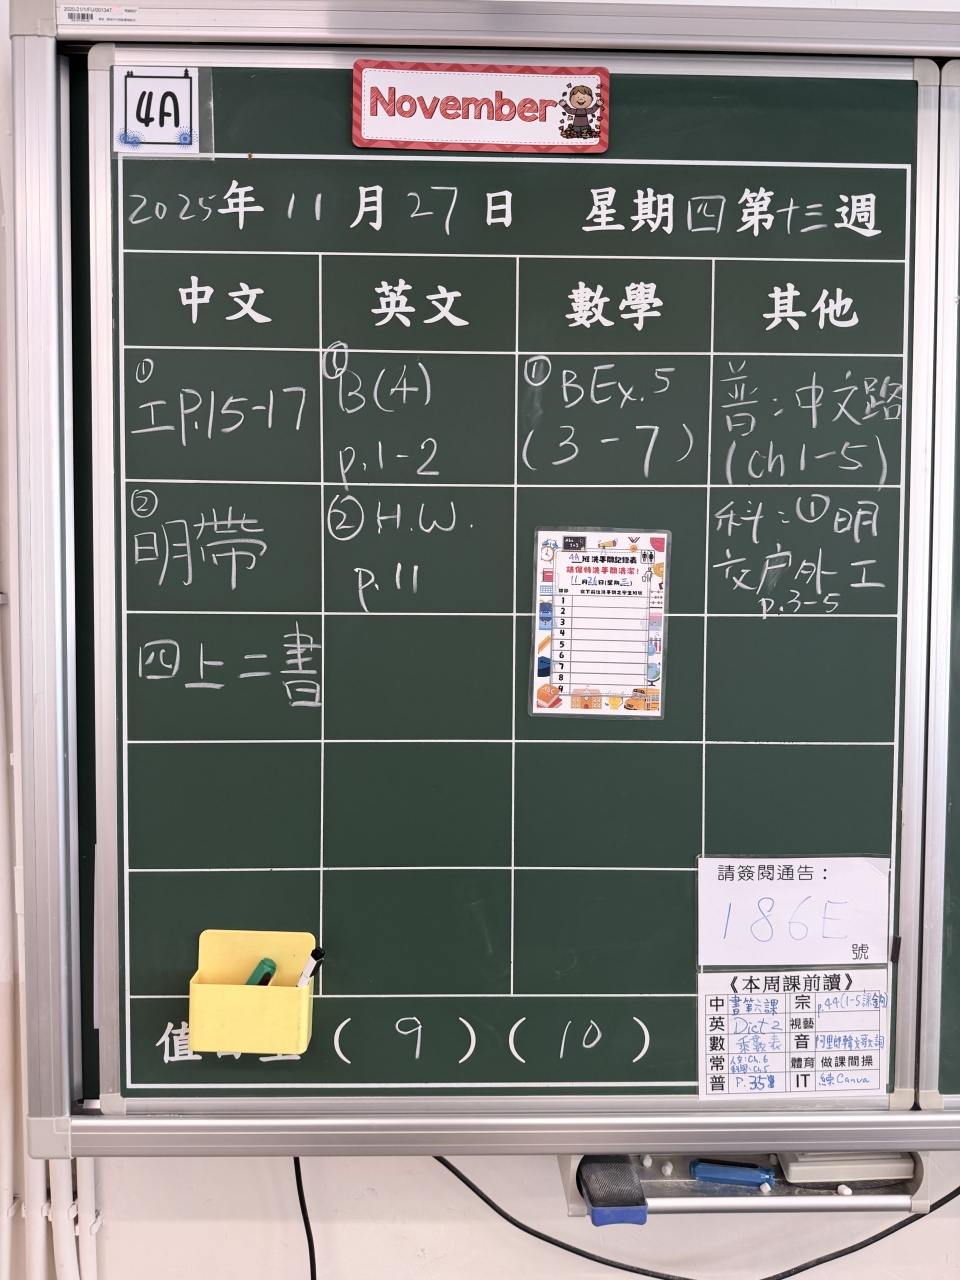 2020-21/1/FU/001347
4A
November
2025年 11月 27日 星期四 第十三週
中文 英文 數學 其他
①
工P.15-17
②
明帶
四上二書
①
B(4)
p.1-2
② H.W.
p.11
① BEx.5
(3-7)
普：中文路
(ch1-5)
科：①明
交户外工
p.3-5
4A 班洗手間記錄表
請保持洗手間清潔！
11月26日(星期三)
1
2
3
4
5
6
7
8
9
請簽閱通告：
186E
號
《本周課前讀》
中 書第六課 宗 p.44(1-5課金句)
英 Dict 2 視藝
數 乘數表 音
常 人文:Ch.6 科學:Ch.5 體育 做課間操
普 P.35 IT 練Canva
值 (9) (10)